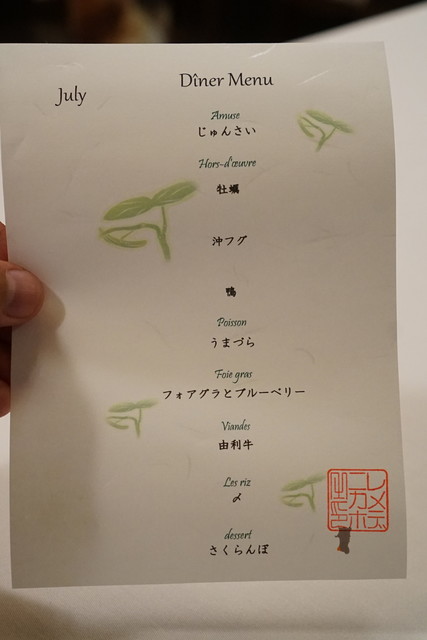 Dîner Menu
July
Amuse
じゅんさい
Hors-d'œuvre
牡蠣
沖フグ
鴨
Poisson
うまづら
Foie gras
フォアグラとブルーベリー
Viandes
由利牛
Les riz
〆
dessert
さくらんぼ
レメデ
ニカホ
之印